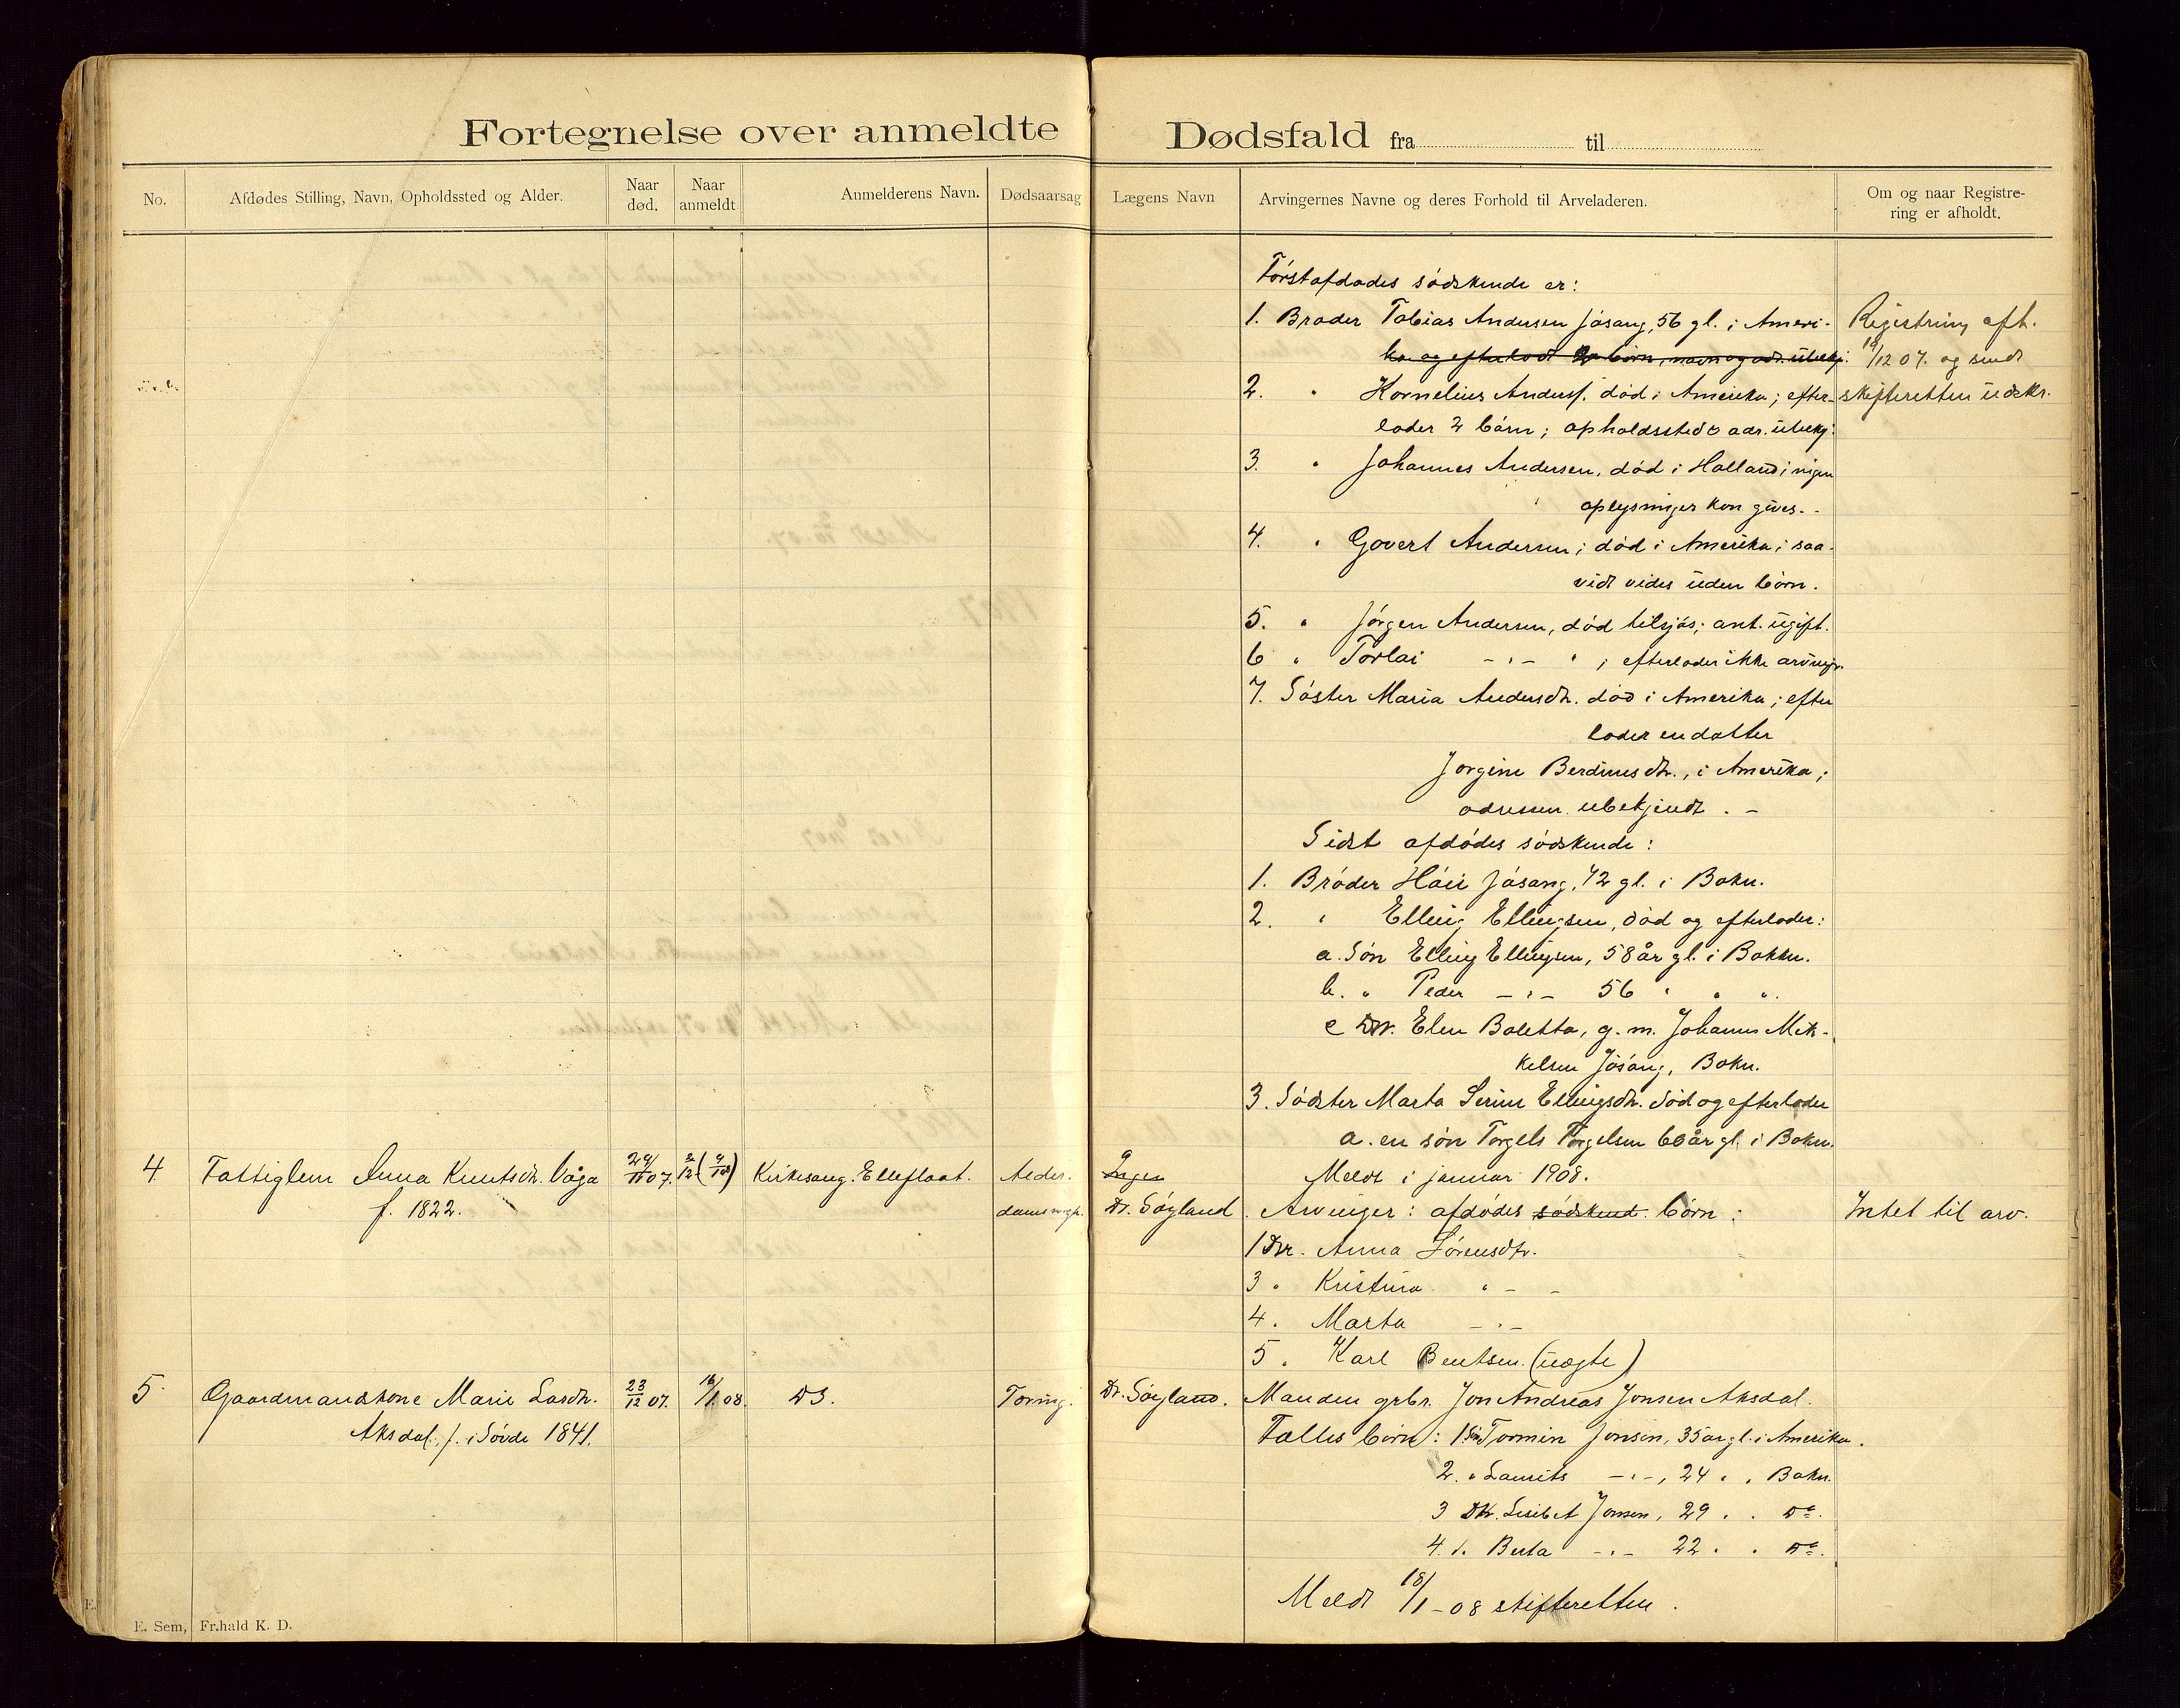 Fortegnelse over anmeldte Dødsfald fra til
No. Afdødes Stilling, Navn, Opholdssted og Alder. Naar død. Naar anmeldt. Anmelderens Navn. Dødsaarsag Lægens Navn Arvingernes Navne og deres Forhold til Arveladeren. Om og naar Registrering er afholdt.
Förstafdødes södskende er:
1. Broder Tobias Andersen Jösang, 56 gl. i Ameri-
ka og efterlod 2 börn, navn og adr. ubekj.
2. " Kornelius Anders. död i Amerika; efter-
lader 2 börn; opholdssted o adr. ubekj.
3. " Johannes Andersen, död i Holland; ingen
oplysninger kan gives. -
4. " Govert Andersen; död i Amerika; saa-
vidt vides uden börn.
5. " Jörgen Andersen, död tilsjös; ant. ugift.
6 " Torlai -"- " ; efterlader ikke arvinger.
7. Söster Maria Andersdtr. död i Amerika; efter
lader en datter
Jorgine Berdinesdtr., i Amerika;
adressen ubekjendt. -
Sidst afdödes södskende:
1. Bröder Höie Jösang, 72 gl. i Bokn.
2. " Elling Ellingsen, död og efterlader:
a. Sön Elling Ellingsen, 58 år gl. i Bokn.
b. " Peder -"- 56 " " ".
c Dtr. Elen Boletta, g. m. Johannes Mik-
kelsen Jösang, Bokn.
3. Södster Marta Serine Ellingsdtr. död og efterlader
a. en sön Torgels Torgelsen 60 år gl. i Bokn.
Meldt i januar 1908.
Registrering afh.
19/12 07. og sendt
skifteretten udskr.
4 Fattiglem Anna Knutsdtr. Våga
f. 1822.
29/11 07. 2/12 Kirkesang. Elleflaat. Alder-
domssvagh. Ingen
Dr. Söyland. Arvinger: afdödes södskend. börn:
Intet til arv.
1 Dtr. Anna Sörensdtr.
3 " Kristina " - -
4. Marta -"-
5 " Karl Bentsen. (uægte)
5. Gaardmandskone Marie Lasdtr. 23/12 07. 16/1 08. DS. Tæring. Dr. Söyland. Manden grbr. Jon Andreas Jonsen Aksdal.
Aksdal, f. i Sövde 1841.
Fælles börn: 1 Sön Tormin Jonsen, 35 år gl. i Amerika.
2. " Laurits -"-, 24 " " Bokn.
3 Dtr. Lisibet Jonsen, 29 . . Do.
4. " Berta -"- 22 " " Do.
Meldt 18/1-08 skifteretten.
E. Sem, Fr.hald K. D.